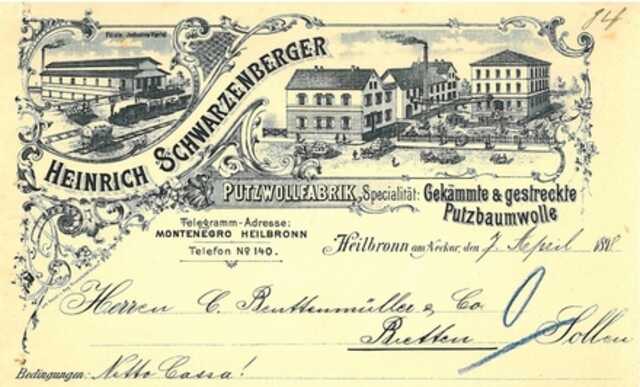 84
Filiale Jedlesee-Vienna
HEINRICH SCHWARZENBERGER
PUTZWOLLFABRIK, Specialität: Gekämmte & gestreckte
Putzbaumwolle
Telegramm-Adresse:
MONTENEGRO HEILBRONN
Telefon No 140.
Heilbronn am Neckar, den 7 April 1898
Herren C. Beuttenmüller & Co.
Bretten Sollen
Bedingungen: Netto Cassa!